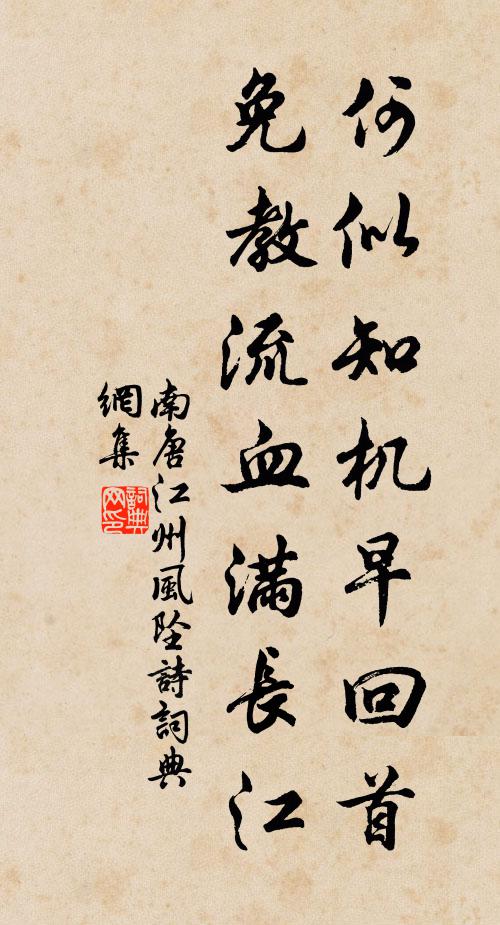 何似知机早回首
免教流血满長江
南唐江州風墜詩詞典
網集
詞典网印